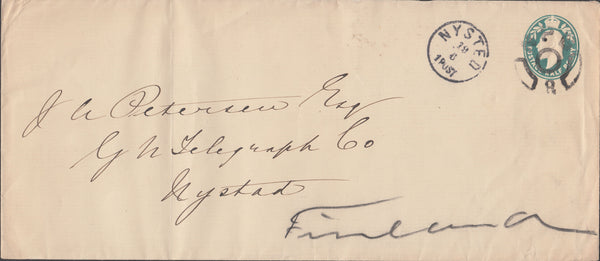 NYSTED
19
6
1 POST
J A Petersen Esq
G N Telegraph Co
Nystad
Finland